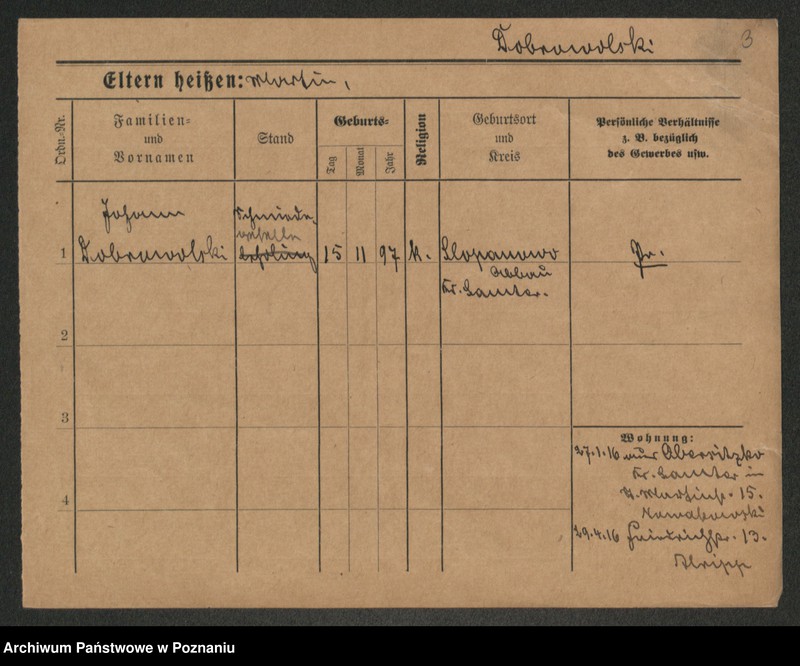 Dobrowolski
3
Eltern heißen: Martin,
Ordn.-Nr.
Familien-
und
Vornamen
Stand
Geburts-
Tag
Monat
Jahr
Religion
Geburtsort
und
Kreis
Persönliche Verhältnisse
z. B. bezüglich
des Gewerbes usw.
Johann
Schmiede-
1 Dobrowolski 15 11 97 k. Slopanowo Pr.
Abbau
Kr. Samter.
2
3
4
Wohnung:
27.1.16 aus
Kr. Samter in
St. Martinstr. 15.
Nowakowski
29.4.16 Friedrichstr. 13.
Archiwum Państwowe w Poznaniu